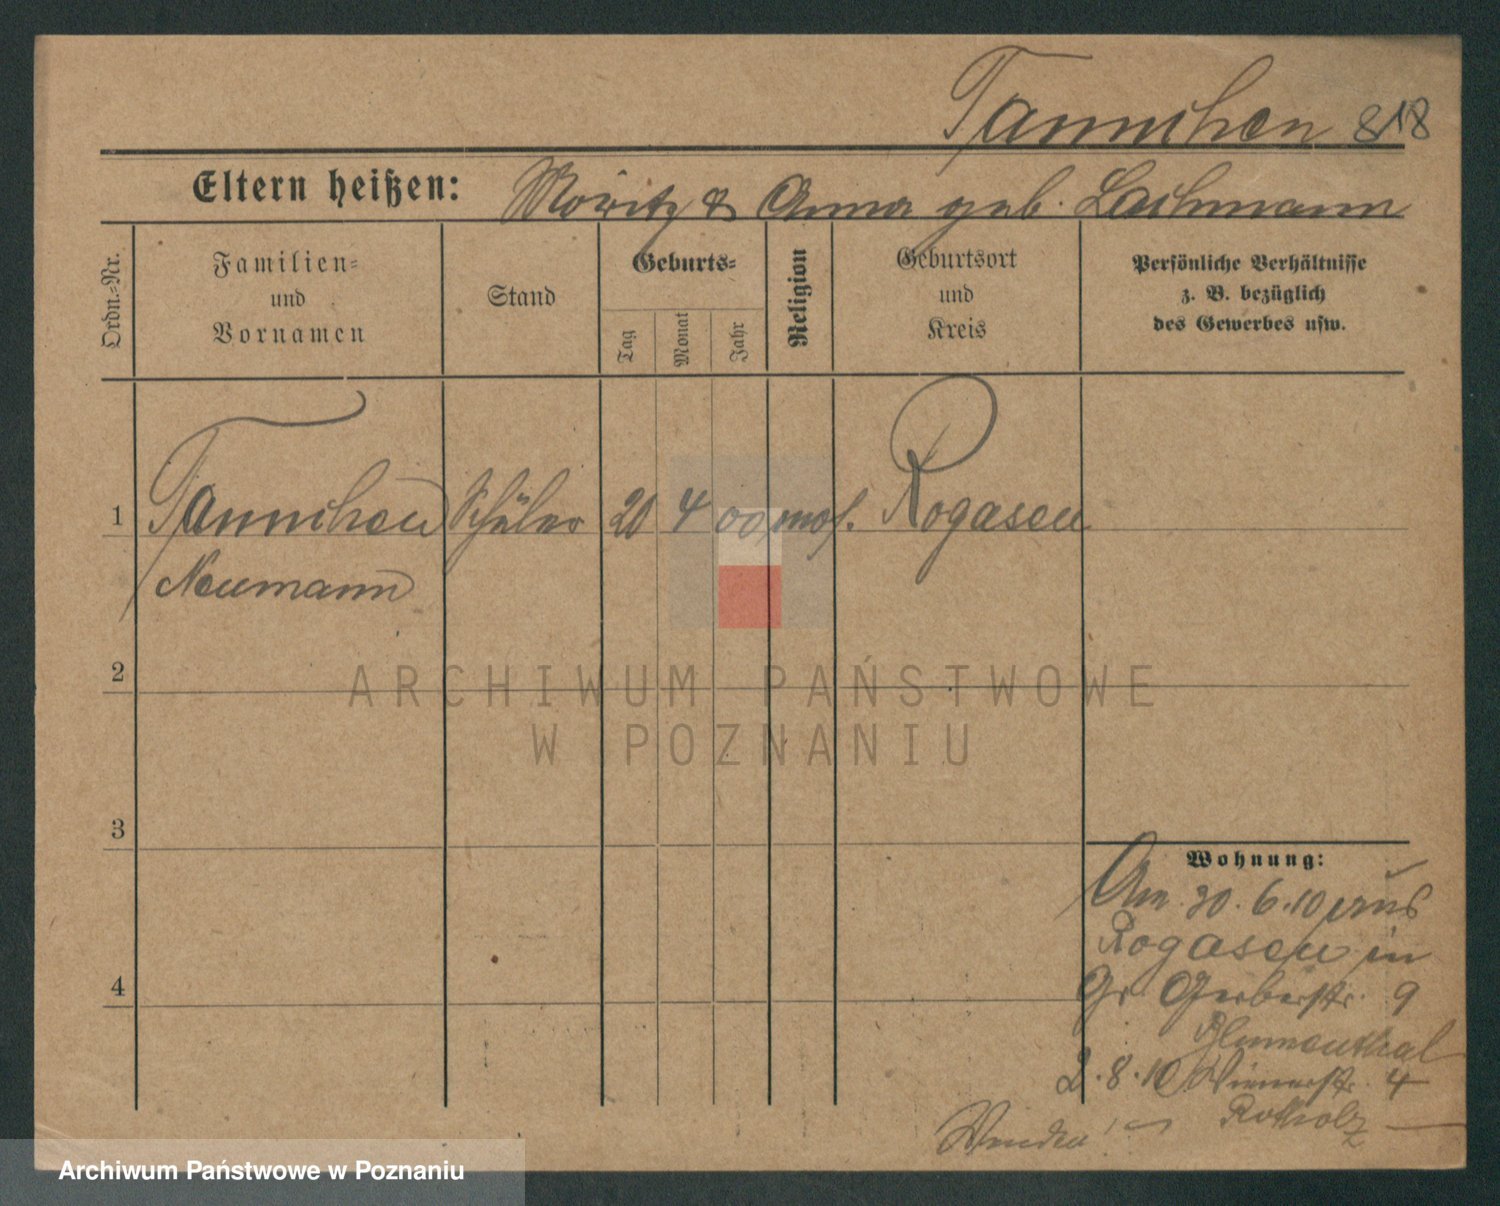 Tannchen 818
Eltern heißen: Moritz & Anna geb. Lachmann
Ordn.-Nr.
Familien-
und
Vornamen
Stand
Geburts-
Tag
Monat
Jahr
Religion
Geburtsort
und
Kreis
Persönliche Verhältnisse
z. B. bezüglich
des Gewerbes usw.
1 Tannchen Schüler 20 4 00 mos. Rogasen
Neumann
2
3
4
Wohnung:
Am 30.6.10 aus
Rogasen in
Gr. Gerberstr. 9
Blumenthal
2.8.10 Wienerstr. 4
Rotholz
Wenden!
ARCHIWUM PAŃSTWOWE
W POZNANIU
Archiwum Państwowe w Poznaniu